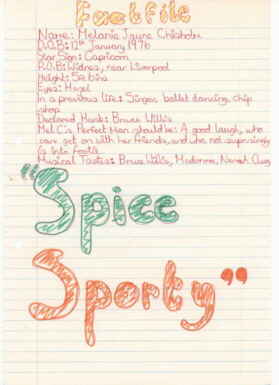 Factfile
Name: Melanie Jayne Chisholm
D.O.B: 12th January 1976
Star Sign: Capricorn
P.O.B: Widnes, near Liverpool
Height: 5ft 6ins
Eyes: Hazel
In a previous life: Singer, ballet dancing, chip
shop
Declared Hunk: Bruce Willis
Mel C's Perfect Man should be: A good laugh, who
can get on with her friends, and who not suprisingly
is into footie
Musical Tastes: Bruce Willis, Madonna, Neneh
"Spice
Sporty"